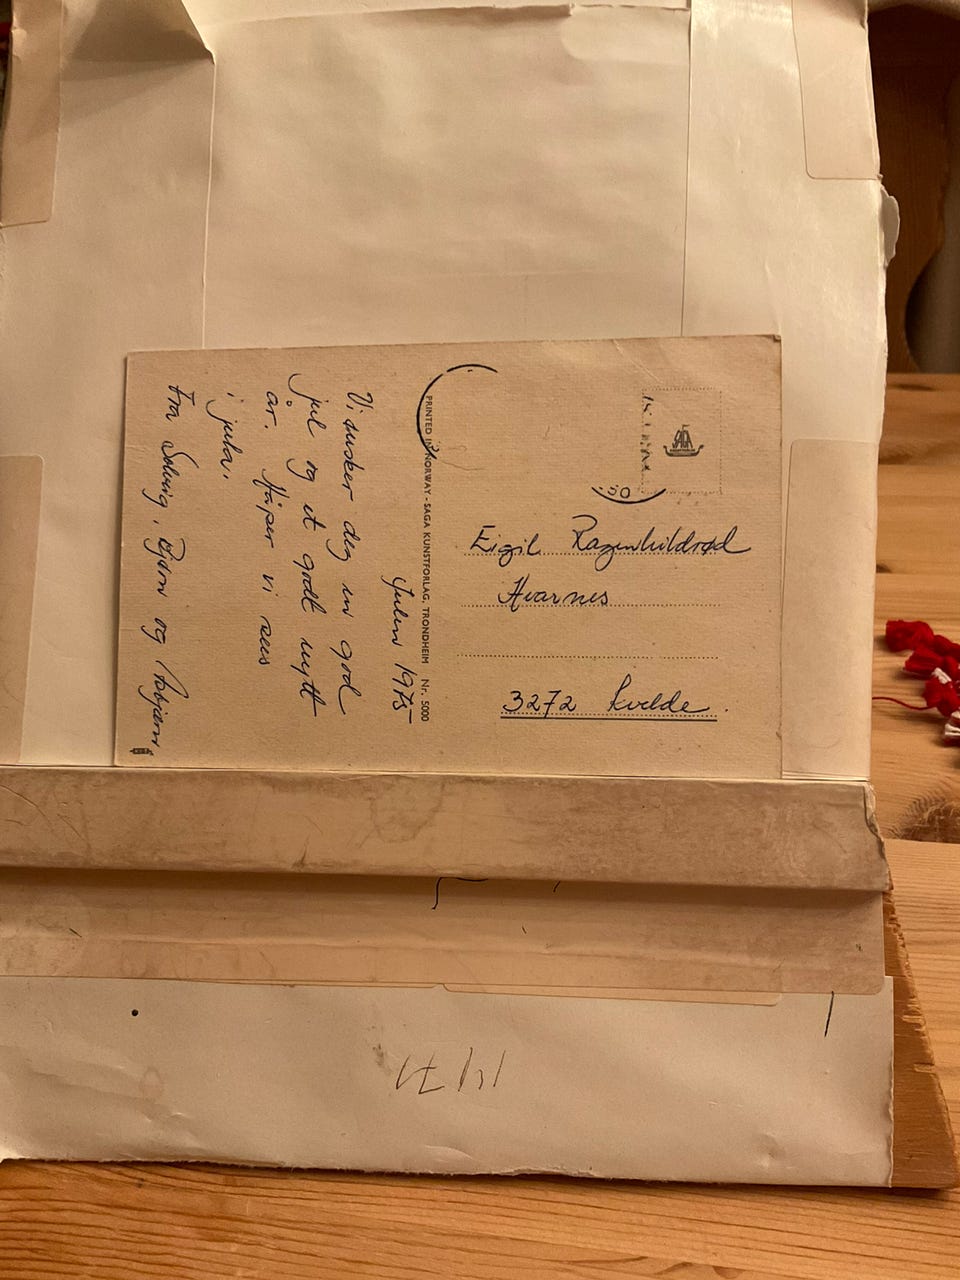 Julen 1975
Vi ønsker deg en god
jul og et godt nytt
år. Håper vi sees
i jula.
Fra Solveig, Bjørn og Asbjørn
PRINTED IN NORWAY - SAGA KUNSTFORLAG, TRONDHEIM Nr. 5000
SAGA
50
Eigil Ragnhildrød
Hvarnes
3272 Kvelde.